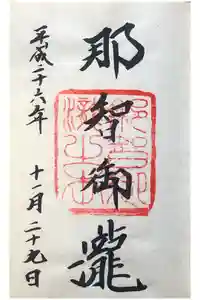 那智御瀧
平成二十六年
十一月二十九日